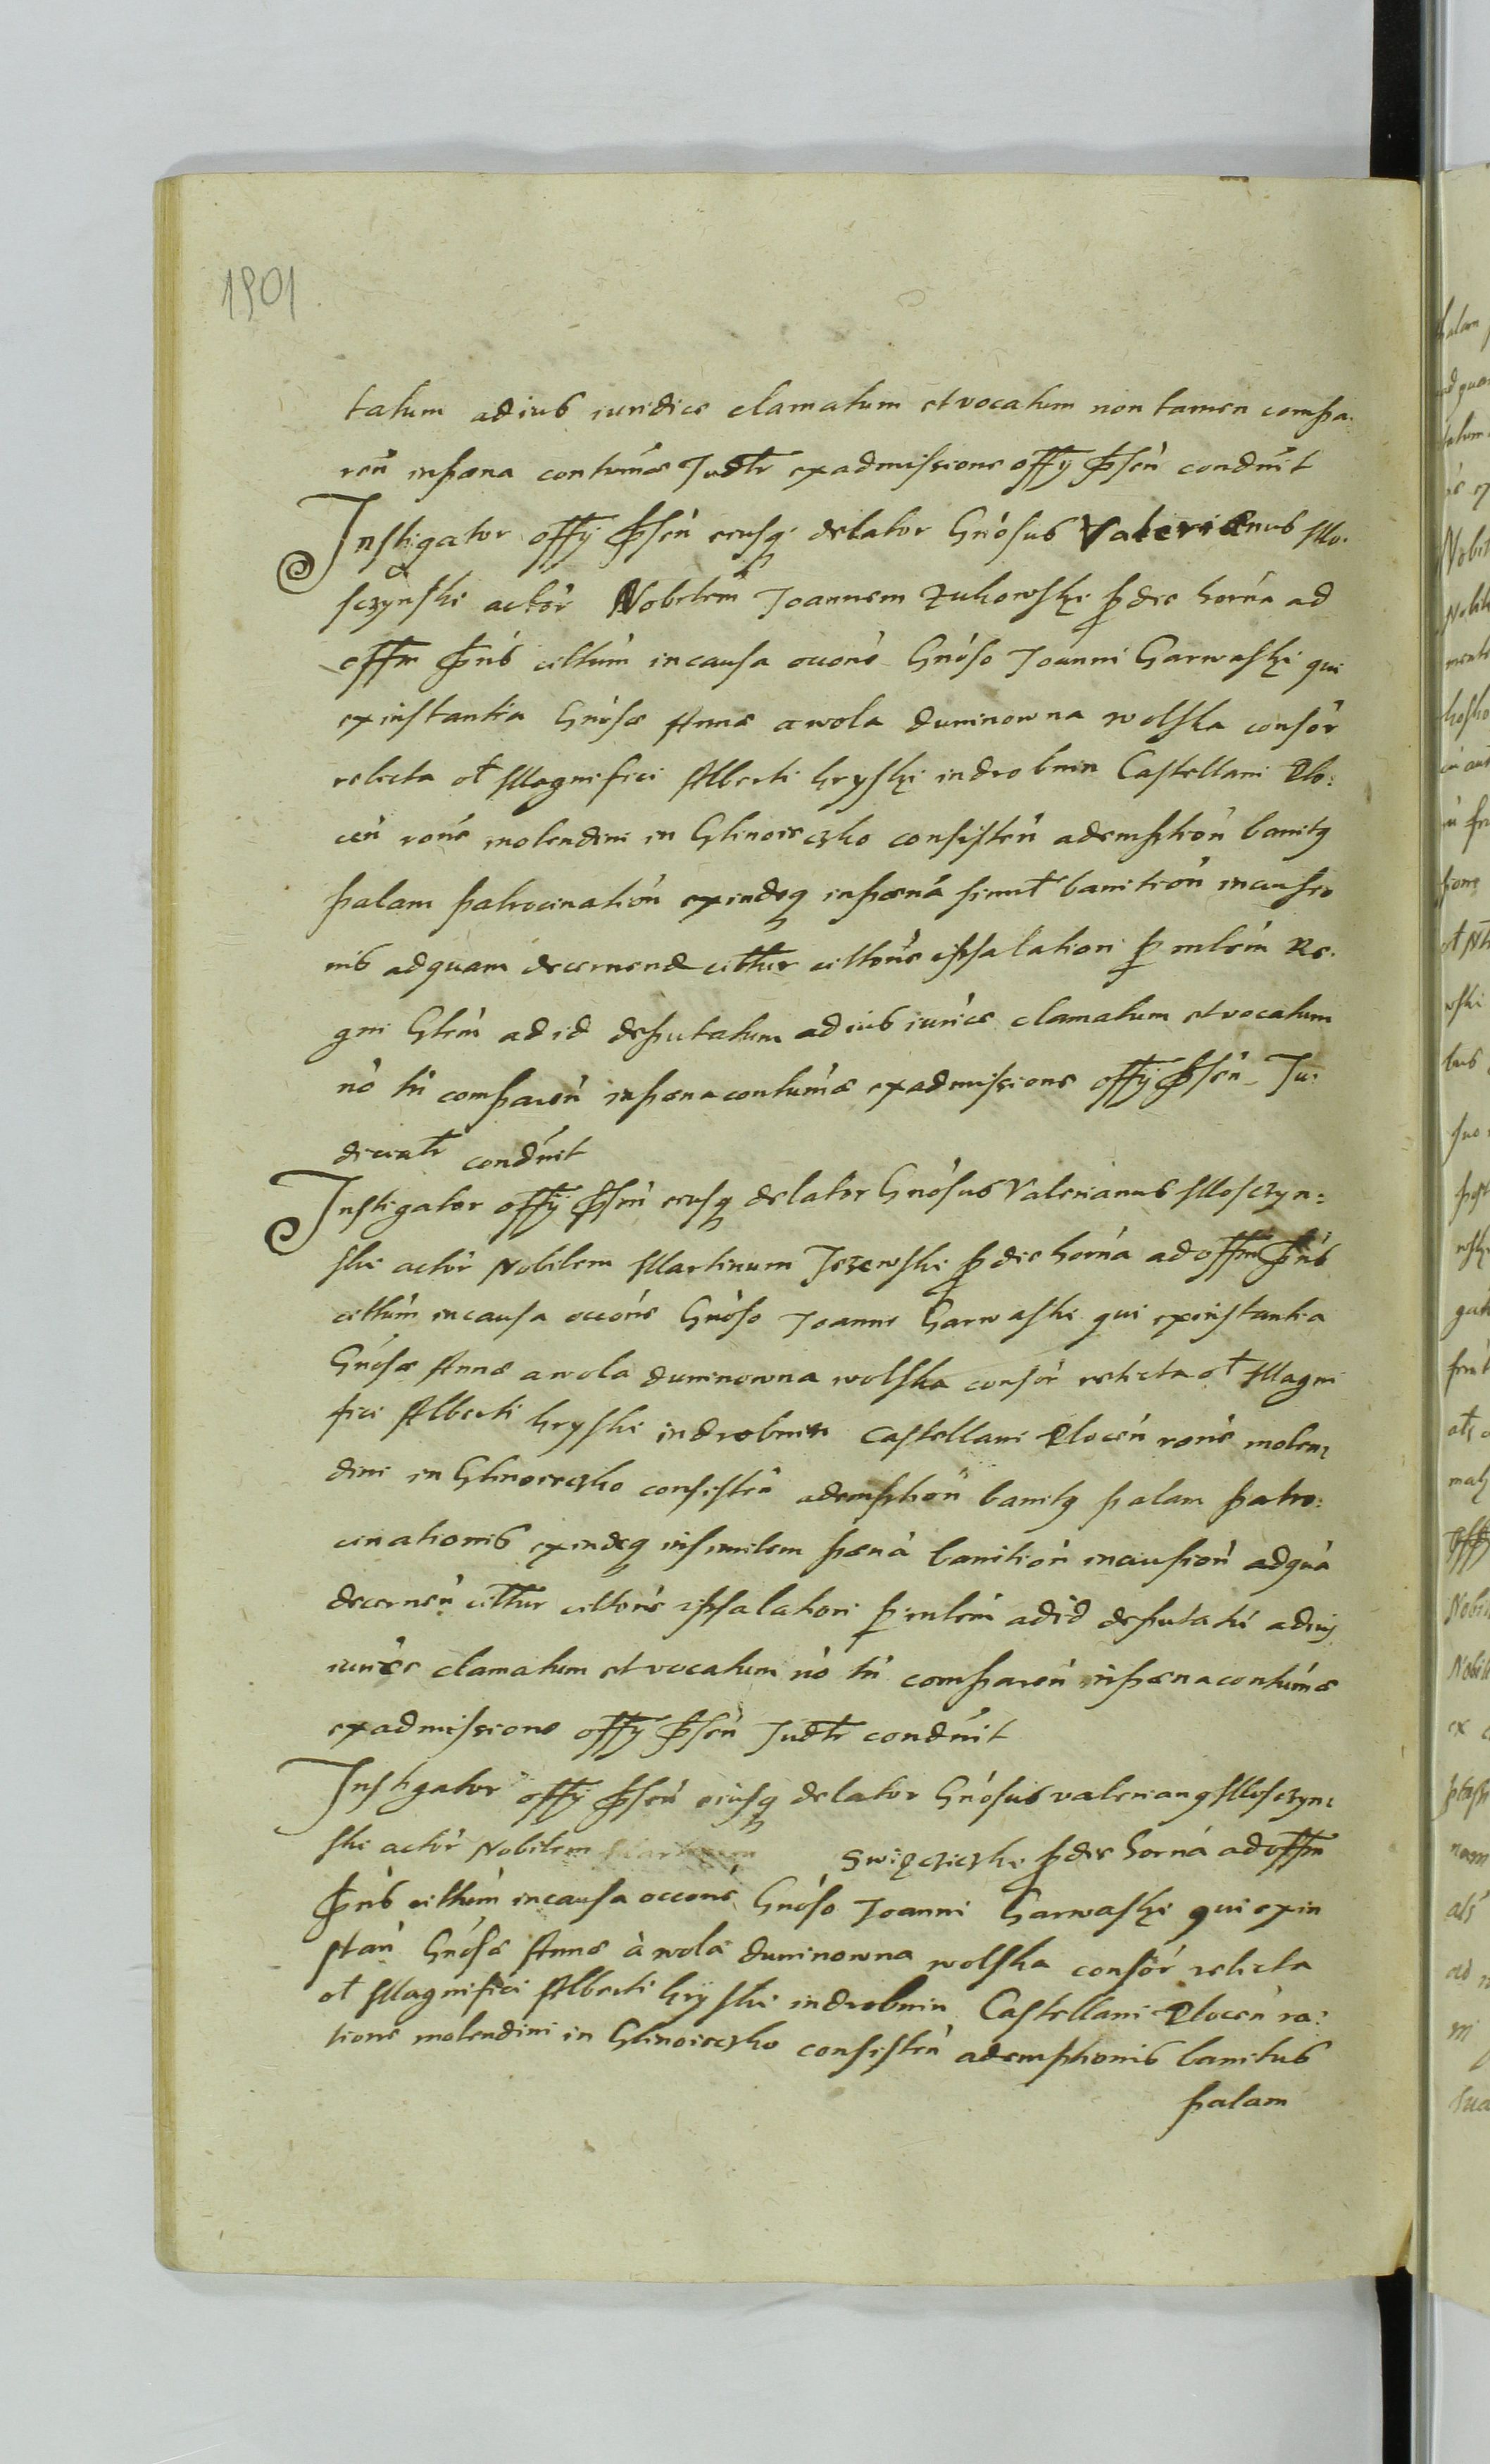 1901
tatum ad ius iuridice clamatum et vocatum non tamen compa.
reń in pæna contumae Judtr ex admissione offy pṡeń conduit
Instigator offy pṡeń eiusq delator Gnosus Valerianus Mo.
sczynski actor Nobilem Joannem Zukowski p die horna ad
offm pns cittum in causa occone Gnoso Joanni Garwaski qui
ex instantia Gnosæ Annæ a wola duninowna wolska consor
relicta ot Magnifici Alberti kryski in drobnin Castellani Plo:
ceń rone molendini in Glinoieczko consisteń ademption banitq
palam patrocination exindeq in pæna simit banition incusio
nis ad quam decernend cittur cittone ipsa latiori p mlem Re.
gni Glem ad id deputatum ad ius iurice clamatum et vocatum
no tn compareń in pæna contumae ex admissione offy pṡeń Ju:
diciatr conduit
Instigator offy pṡeń eiusq delator Gnosus Valerianus Mosczyn:
ski actor Nobilem Martinum Jezewski p die horna ad offm pns
cittum in causa occone Gnoso Joanni Garwaski qui ex instantia
Gnosæ Annæ a wola duninowna wolska consor relicta ot Magni
fici Alberti kryski in drobnin Castellani Ploceń rone molen:
dini in Glinoieczko consisteń ademption banitq palam patro:
cinationis exindeq in similem pæna banition incusion ad qua
decerneń cittur cittone ipsa latiori p mlem ad id deputati ad ius
iurice clamatum et vocatum no tn compareń in pæna contumae
ex admissione offy pṡeń Judtr conduit
Instigator offy pṡeń eiusq delator Gnosus valerianq Mosczyn:
ski actor Nobilem Swięczicki p die horna ad offm
pns cittum in causa occone Gnoso Joanni Garwaski qui ex in
stań Gnosæ Annæ à wola duninowna wolska consor relicta
ot Magnifici Alberti kryski in drobnin Castellani Ploceń ra:
tione molendini in Glinoieczko consisteń ademptionis banitus
palam